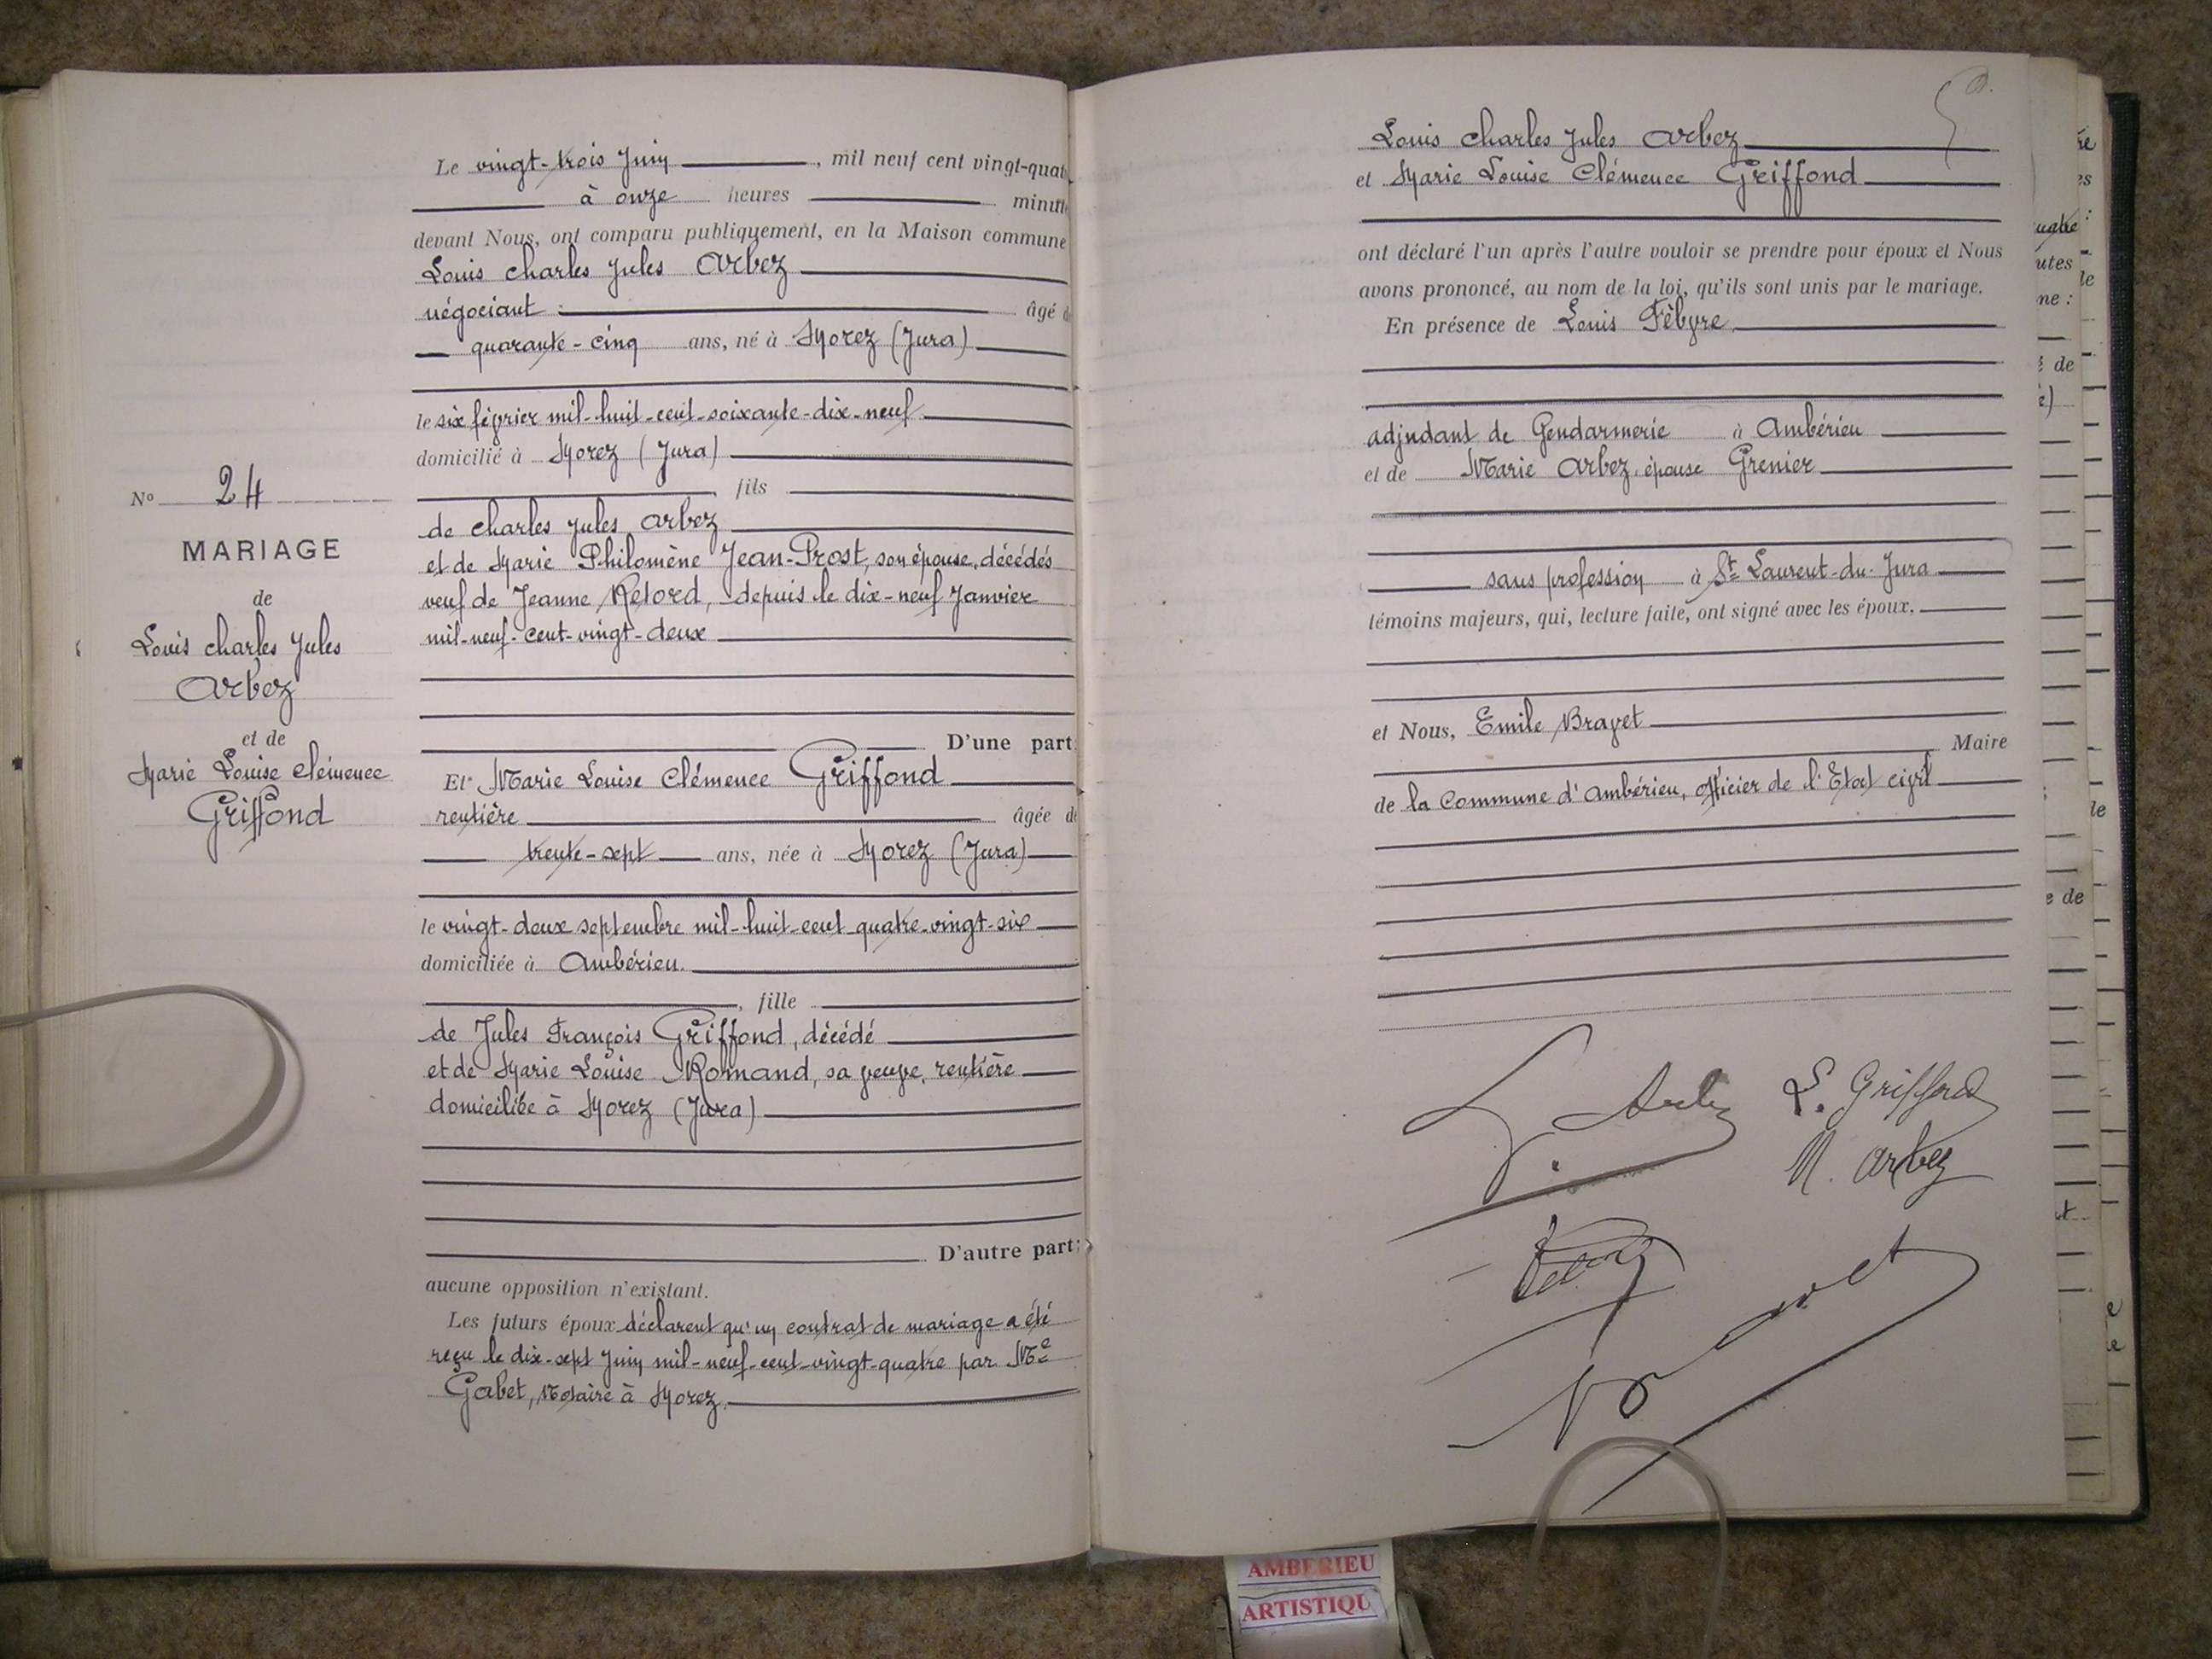 Le vingt-trois Juin, mil neuf cent vingt-quat
à onze heures minute
devant Nous, ont comparu publiquement, en la Maison commune
Louis Charles Jules Arbez
négociant âgé d
quarante-cinq ans, né à Morez (Jura)
le six février mil-huit-cent-soixante-dix-neuf
domicilié à Morez (Jura)
fils
de Charles Jules Arbez
et de Marie Philomène Jean-Prost, son épouse, décédés
veuf de Jeanne Retord, depuis le dix-neuf Janvier
mil-neuf-cent-vingt-deux
D'une part
Et Marie Louise Clémence Griffond
rentière âgée de
trente-sept ans, née à Morez (Jura)
le vingt-deux septembre mil-huit-cent-quatre-vingt-six
domiciliée à Ambérieu.
, fille
de Jules François Griffond, décédé
et de Marie Louise Romand, sa veuve, rentière
domiciliée à Morez (Jura)
D'autre part;
aucune opposition n'existant.
Les futurs époux déclarent qu'un contrat de mariage a été
reçu le dix-sept Juin mil-neuf-cent-vingt-quatre par Me
Gabet, Notaire à Morez.
No 24
MARIAGE
de
Louis Charles Jules
Arbez
et de
Marie Louise Clémence
Griffond
Louis Charles Jules Arbez
et Marie Louise Clémence Griffond
ont déclaré l'un après l'autre vouloir se prendre pour époux et Nous
avons prononcé, au nom de la loi, qu'ils sont unis par le mariage.
En présence de Louis Fèbvre
adjudant de Gendarmerie à Ambérieu
et de Marie Arbez, épouse Grenier
sans profession à St Laurent-du-Jura
témoins majeurs, qui, lecture faite, ont signé avec les époux.
et Nous, Emile Bravet
Maire
de la Commune d'Ambérieu, officier de l'Etat civil
L. Griffond
M. Arbez
AMBERIEU
ARTISTIQU